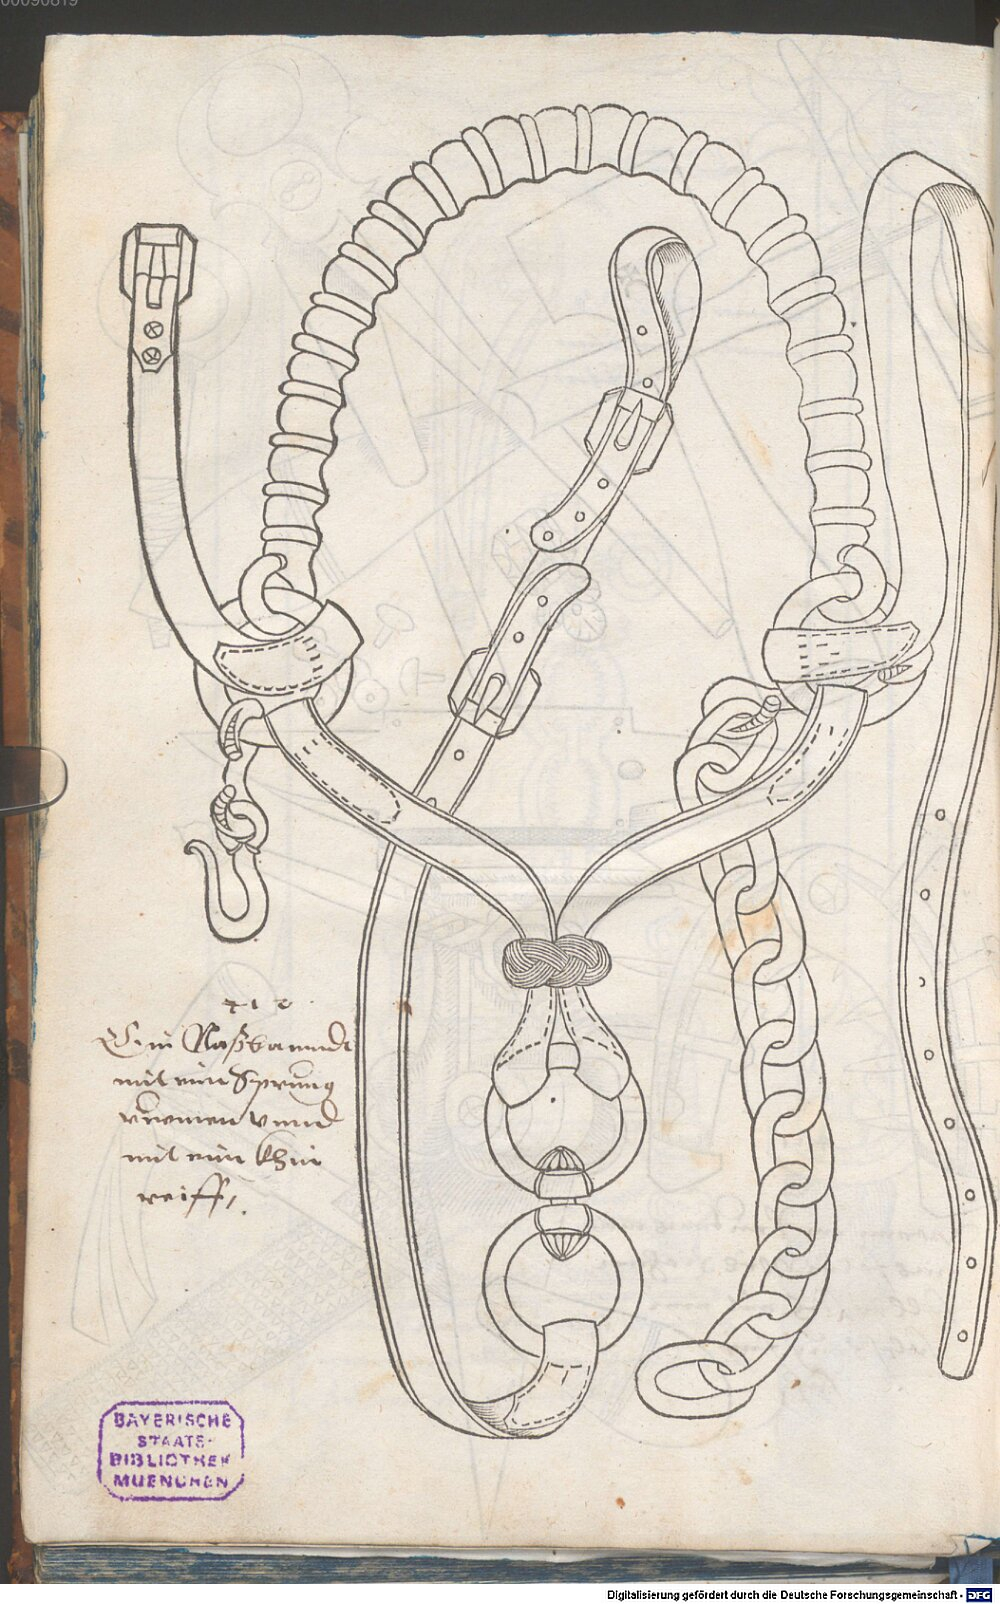 00090819
Ein
mit ein Sprung
vnnd
mit ein khin
reiff,
BAYERISCHE
STAATS-
BIBLIOTHEK
MUENCHEN
Digitalisierung gefördert durch die Deutsche Forschungsgemeinschaft - DFG